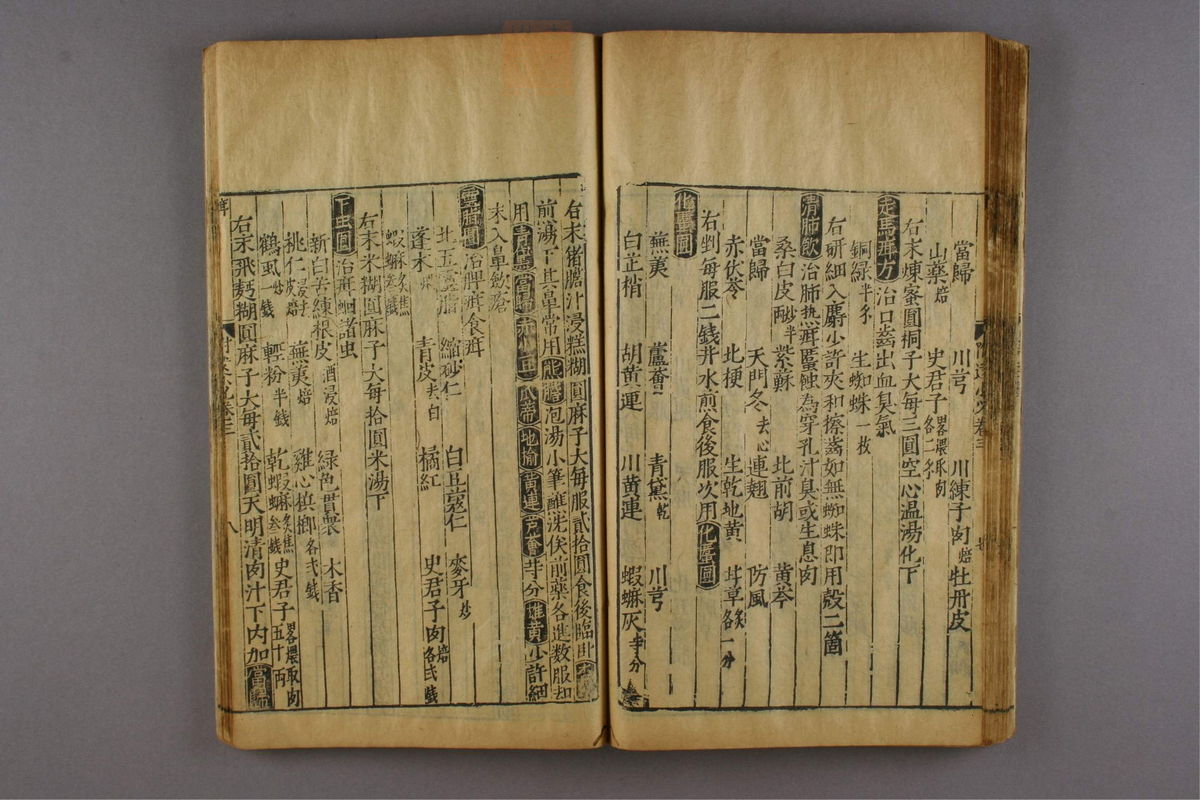 當歸 川芎 川練子肉焙 牡丹皮
山藥焙 史君子畧煨取肉各二錢
右末煉蜜圓桐子大每三圓空心温湯化下
走馬疳方 治口齒出血臭氣
銅緑半錢 生蜘蛛一枚
右研細入麝小許夾和擦齒如無蜘蛛即用殼二箇
清肺飲 治肺熱疳䘌蝕為穿孔汁臭或生息肉
桑白皮炒半兩 紫蘇 北前胡 黄芩
當歸 天門冬去心 連翹 防風
赤伏苓 北梗 生乾地黄 甘草炙各一分
右判每服二錢井水煎食後服次用化䘌圓
化䘌圓
蕪荑 蘆薈 青黛乾 川芎
白芷梢 胡黄連 川黄連 蝦蟆灰等分
右末猪膽汁浸糕糊圓麻子大每服貳拾圓食後臨卧杏仁
煎湯下其鼻常用熊膽泡湯小筆蘸洗俟前藥各進数服却
用青黛當歸赤小豆瓜蒂地榆黄連芦薈等分雄黄少許細
末入鼻歛瘡
靈脂圓 治脾疳食疳
北五靈脂 縮砂仁 白豆蔻仁 麥牙炒
蓬朮煨 青皮去白 橘紅 史君子肉焙各弍錢
蝦蟆炙焦叁錢
右末米糊圓麻子大每拾圓米湯下
下虫圓 治疳蛔諸虫
新白苦練根皮酒浸焙 緑色貫衆 木香
桃仁浸去皮焙 蕪荑焙 雞心檳鄉各弍錢
鶴虱炒一錢 輕粉半錢 乾蝦蟆炙焦叁錢 史君子畧煨取肉五十兩
右末飛麪糊圓麻子大每貳拾圓天明清肉汁下内加當歸
八